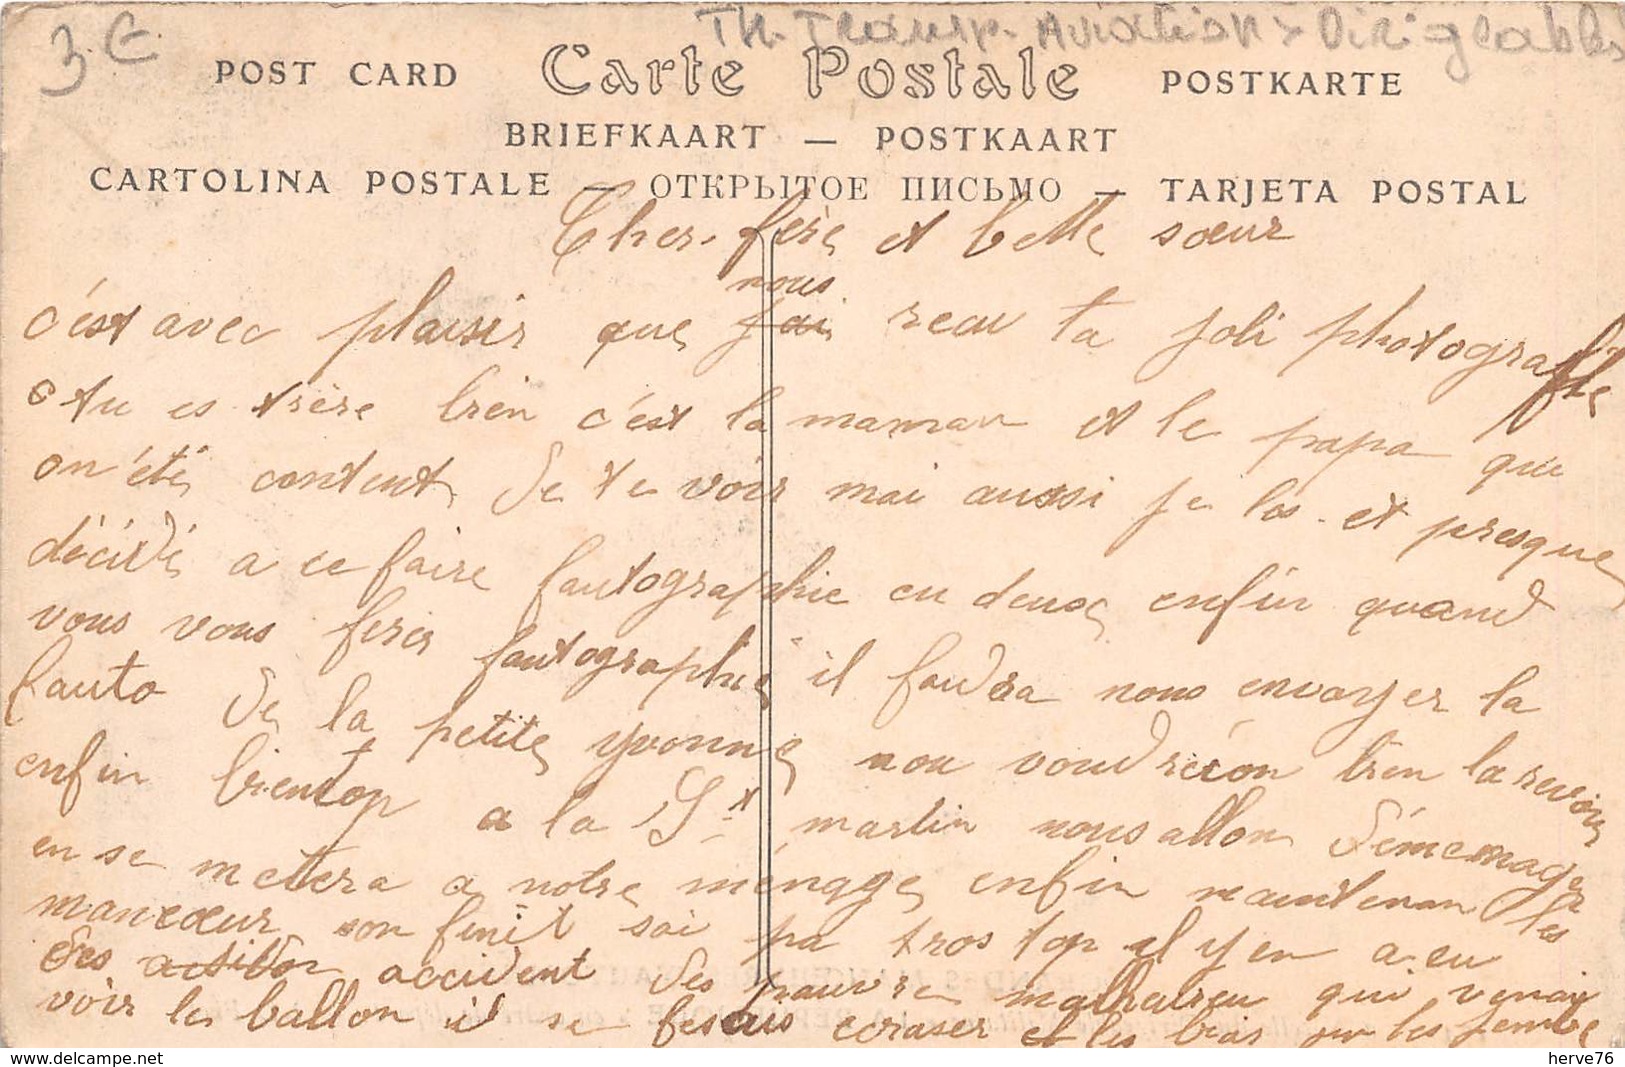 3 € Th. Transp. Aviation > Dirigeables
POST CARD Carte Postale POSTKARTE
BRIEFKAART — POSTKAART
CARTOLINA POSTALE — ОТКРЫТОЕ ПИСЬМО — TARJETA POSTAL
Cher frère et belle sœur
nous
c'est avec plaisir que j'ai recu ta joli photografhe
tu es trère bien c'est la maman et le papa que
on été content de te voir mai aussi je las et presque
décidé a ce faire fautographie en deux enfin quand
vous vous ferer fautographié il faudra nous envoyer la
fauto de la petite yvonne nou voudrécon bien la revoir
enfin bientop a la St martin nous allon déménager
en se metera a notre ménage enfin maintenan les
manœur son finit sai pa tros top il y en a eu
des accident des pauvre malhareu qui venai
voir le ballon il se fesais ecraser et les bras ou les jambe
herve76